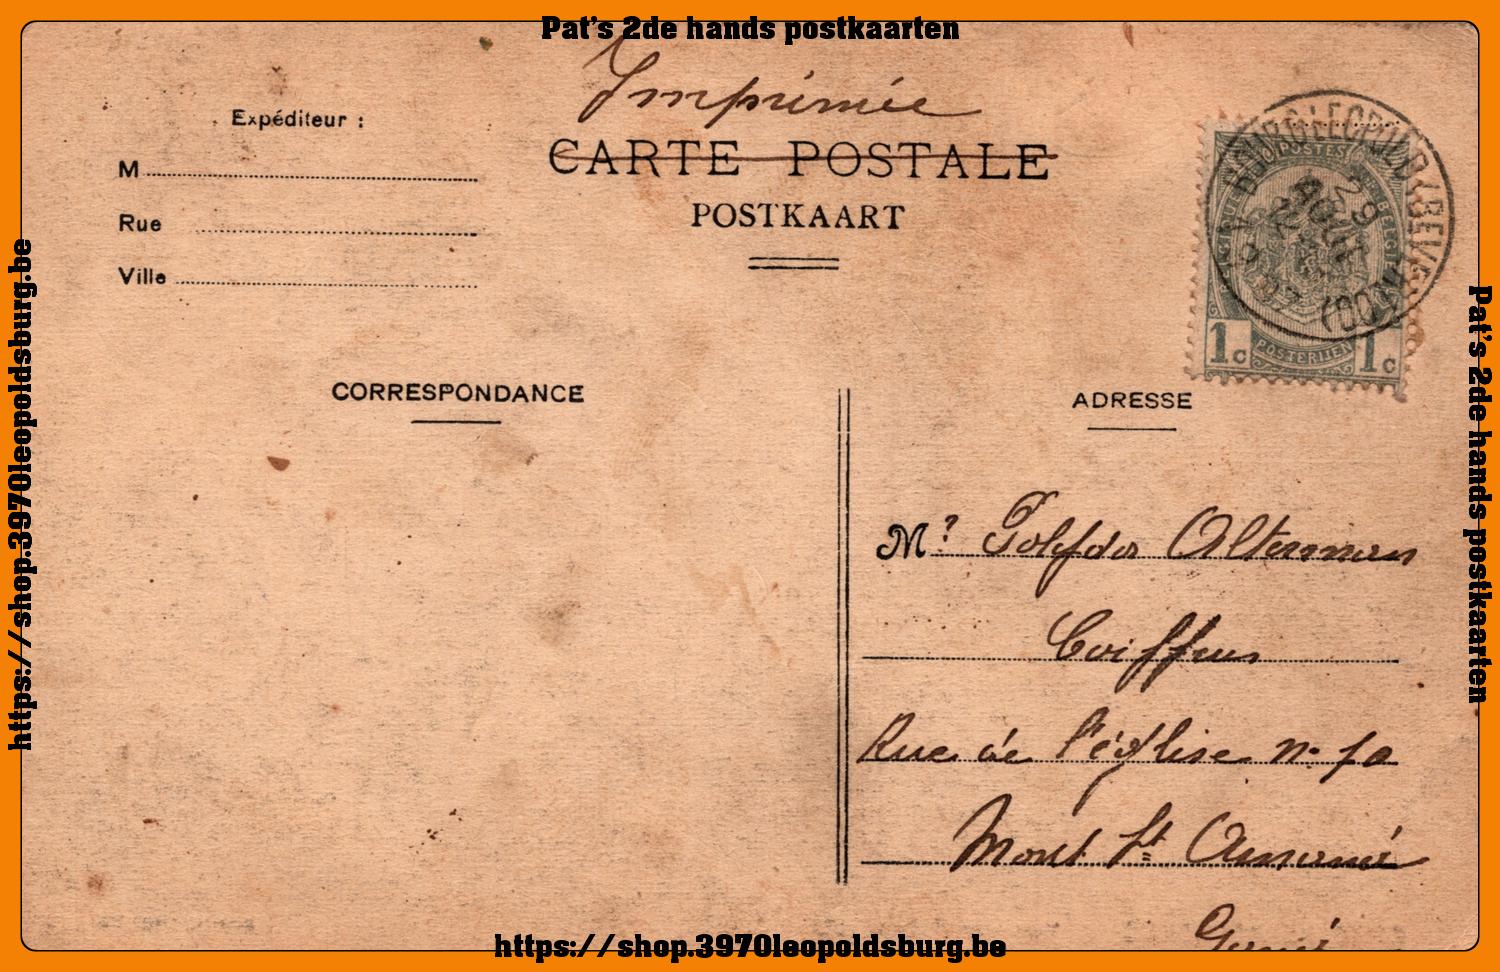 Pat's 2de hands postkaarten
Imprimée
Expéditeur :
CARTE POSTALE
M
POSTKAART
Rue
Ville
POSTES
BELGIË
1c POSTERIJEN 1c
BOURG-LEOPOLD (BEV
29
AOUT
(CAMP)
CORRESPONDANCE
ADRESSE
Mr Polydor Alterman
Coiffeur
Rue de l'église no 10
Mont St Amand
Gand
https://shop.3970leopoldsburg.be
Pat's 2de hands postkaarten
https://shop.3970leopoldsburg.be